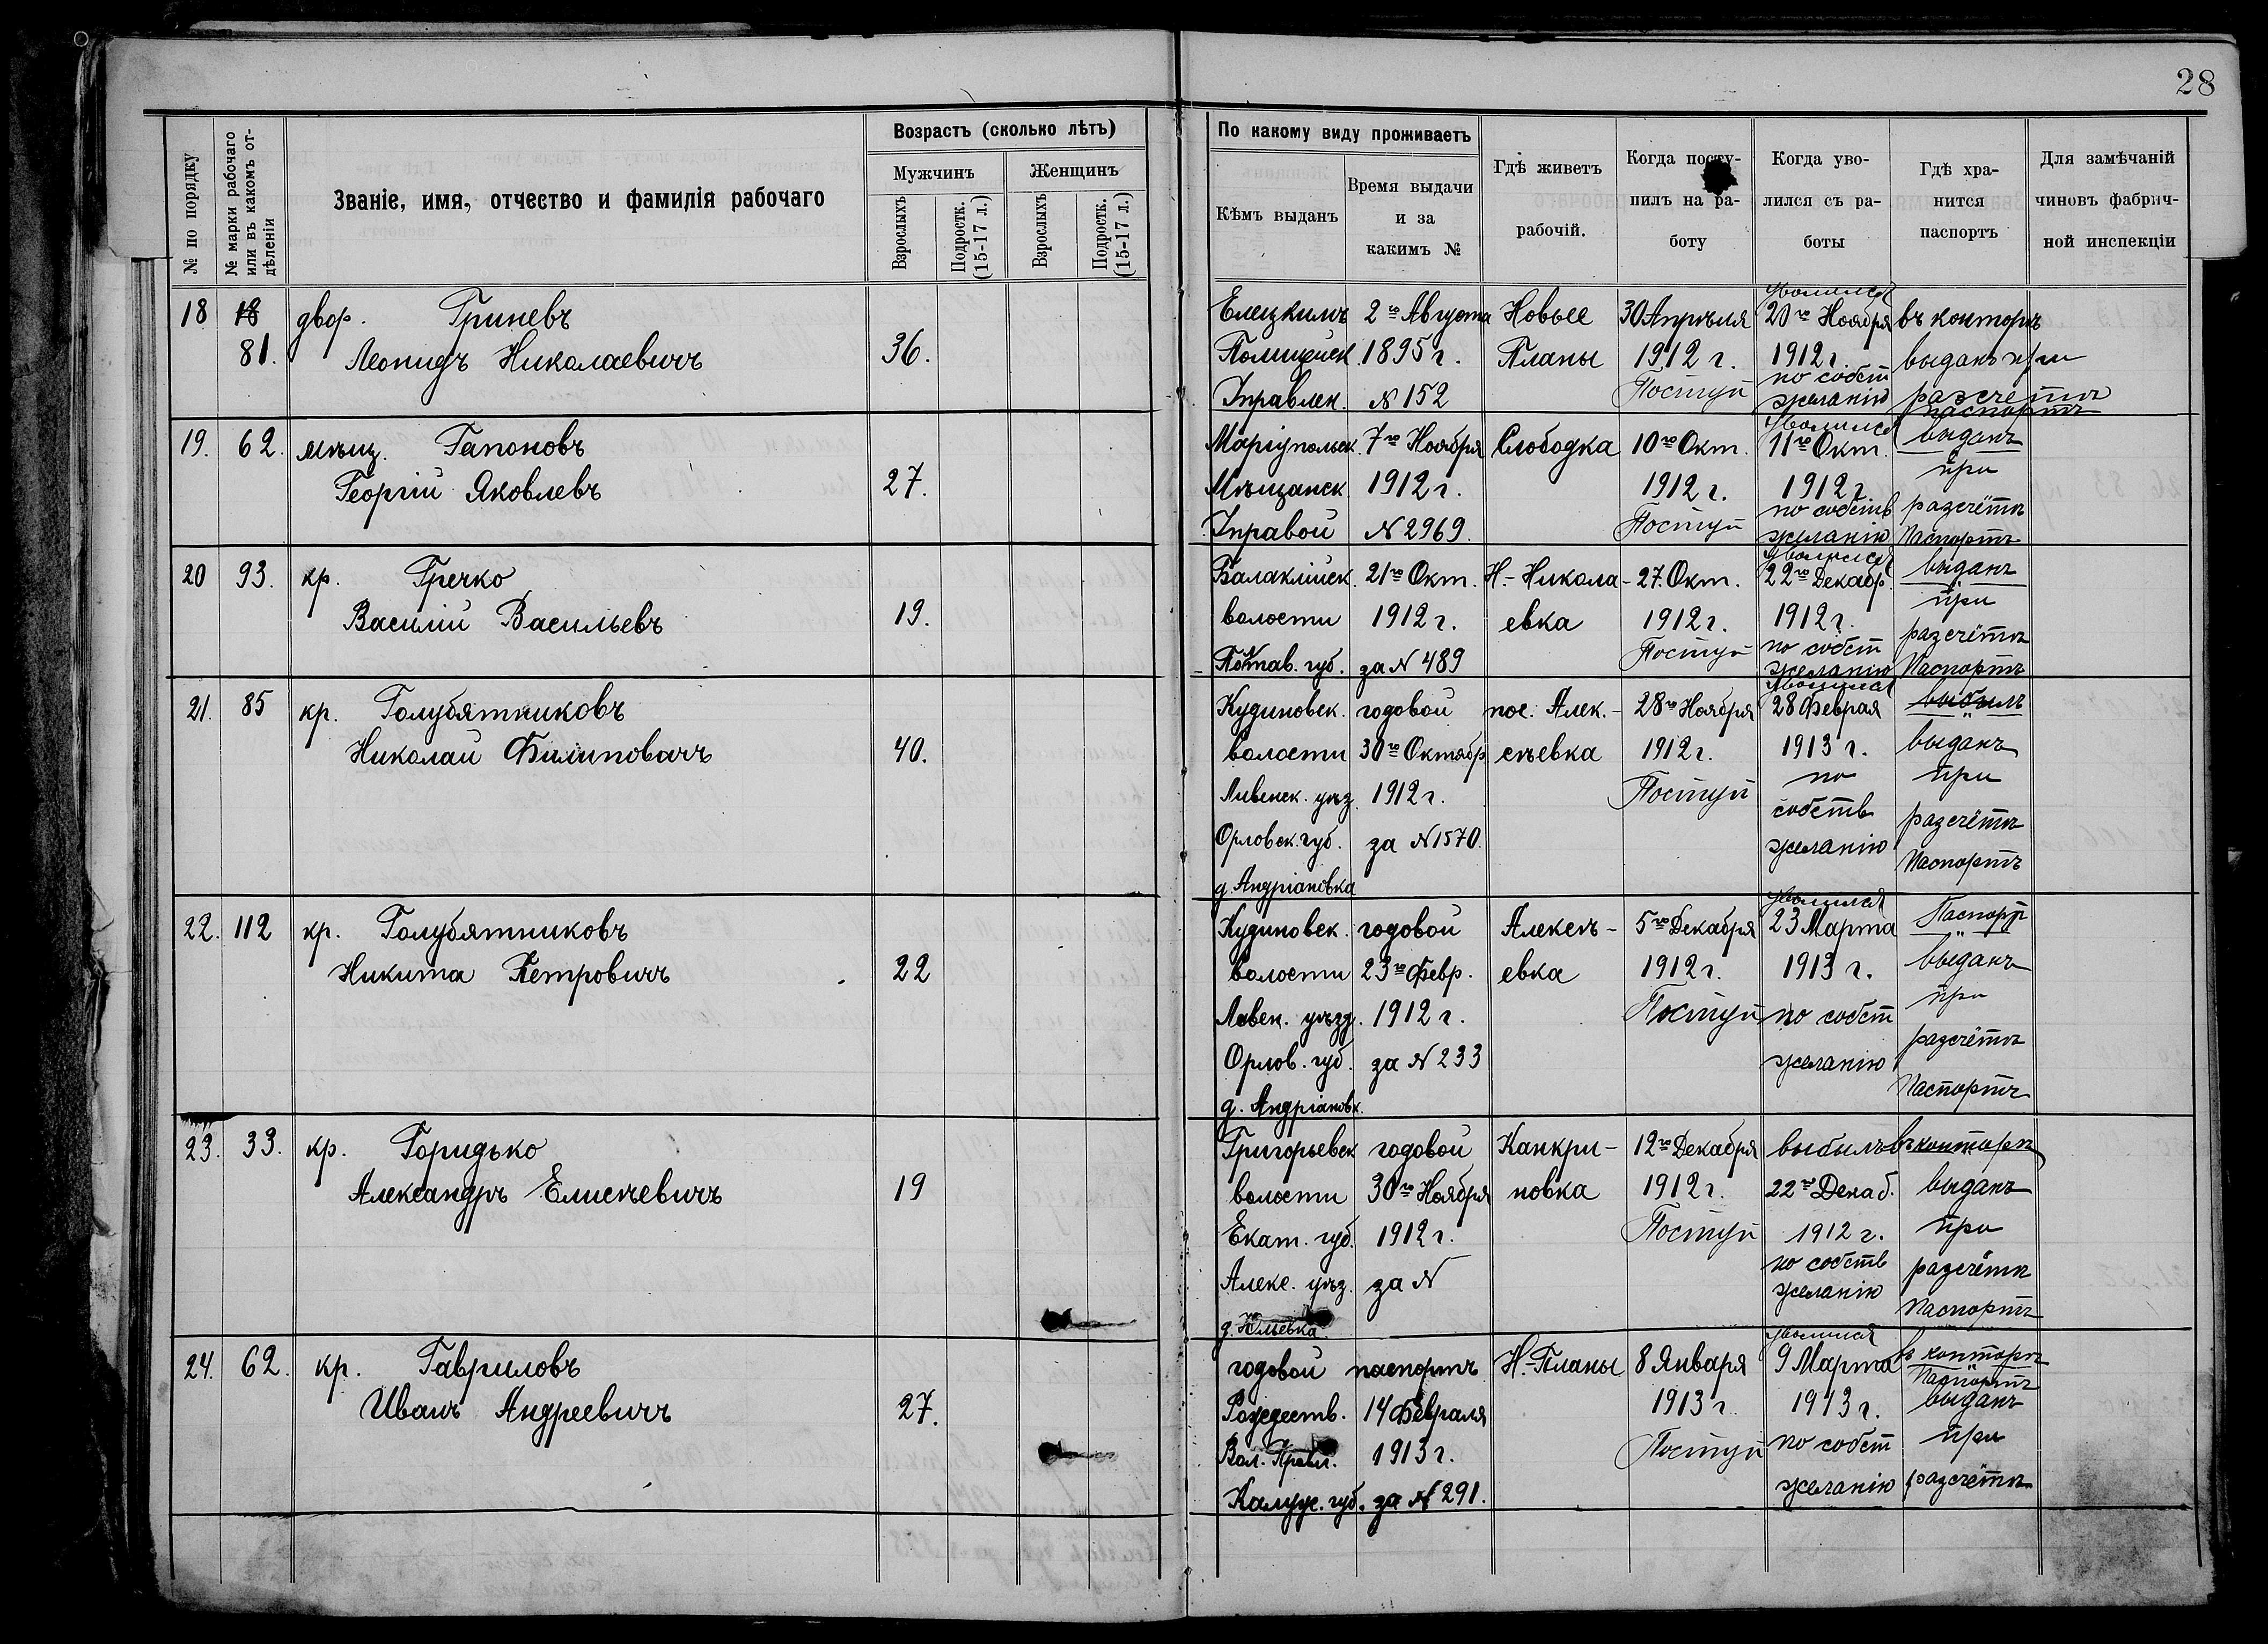 28
№ по порядку
№ марки рабочаго или въ какомъ от-дѣленіи
Званіе, имя, отчество и фамилія рабочаго
Возрастъ (сколько лѣтъ)
Мужчинъ
Женщинъ
Взрослыхъ
Подростк. (15-17 л.)
Взрослыхъ
Подростк. (15-17 л.)
По какому виду проживаетъ
Кѣмъ выданъ
Время выдачи
и за
какимъ №
Гдѣ живетъ
рабочій.
Когда посту-
пилъ на ра-
боту
Когда уво-
лился съ ра-
боты
Гдѣ хра-
нится
паспортъ
Для замѣчаній
чиновъ фабрич-
ной инспекціи
18 18 двор. Гриневъ
81. Леонидъ Николаевичъ 36.
Елецкимъ 2го Августа Новые 30 Апрѣля Уволился 20го Ноября въ конторѣ
Полицейск. 1895 г. Планы 1912 г. 1912 г. выданъ при
Управлен. № 152 Поступ по собст желанію разсчетѣ
паспортъ
19. 62. мѣщ. Гапоновъ
Георгій Яковлевъ 27.
Маріупольск. 7го Ноября Слободка 10го Окт. Уволился 11го Окт. выданъ
Мѣщанск. 1912 г. 1912 г. 1912 г. при
Управой № 2969. Поступ по собств желанію разсчётѣ
Паспортъ
20 93. кр. Гречко
Василій Васильевъ 19.
Балаклійск. 21го Окт. Н.-Никола- 27. Окт. Уволился 22го Декабр. выданъ
волости 1912 г. евка 1912 г. 1912 г. при
Полтав. губ. за № 489 Поступ по собст желанію разсчётѣ
Паспортъ
21. 85 кр. Голубятниковъ
Николай Филиповичъ 40.
Кудиновск. годовой пос. Алек.- 28го Ноября Уволился 28 Феврая выбылъ
волости 30го Октябр сѣевка 1912 г. 1913 г. выданъ
Ливенск. уѣз. 1912 г. Поступ по при
Орловск. губ. за № 1570. собств желанію разсчётѣ
д. Андріановка Паспортъ
22. 112 кр. Голубятниковъ
Никита Петровичъ 22
Кудиновск. годовой Алексѣ- 5го Декабря Уволился 23 Марта Паспорт
волости 23го Февр. евка 1912 г. 1913 г. выданъ
Ливен. уѣзд. 1912 г. Поступ по собст при
Орлов. губ. за № 233 желанію разсчётѣ
д. Андріановк. Паспортъ
23. 33. кр. Горидько
Александръ Елисѣевичъ 19
Григорьевск годовой Канкри- 12го Декабря выбылъ въ конторѣ
волости 30го Ноября новка 1912 г. 22го Декаб. выданъ
Екат. губ. 1912 г. Поступ 1912 г. при
Алекс. уѣз. за № по собств желанію разсчётѣ
д. Юльевка. Паспортъ
24. 62. кр. Гавриловъ
Иванъ Андреевичъ 27.
годовой паспортъ Н.-Планы 8 Января Уволился 9 Марта въ конторѣ
Паспортъ
Рождеств. 14 Февраля 1913 г. 1913 г. выданъ
Вол. Правл. 1913 г. Поступ по собст при
Калуж. губ. за № 291. желанію разсчётѣ